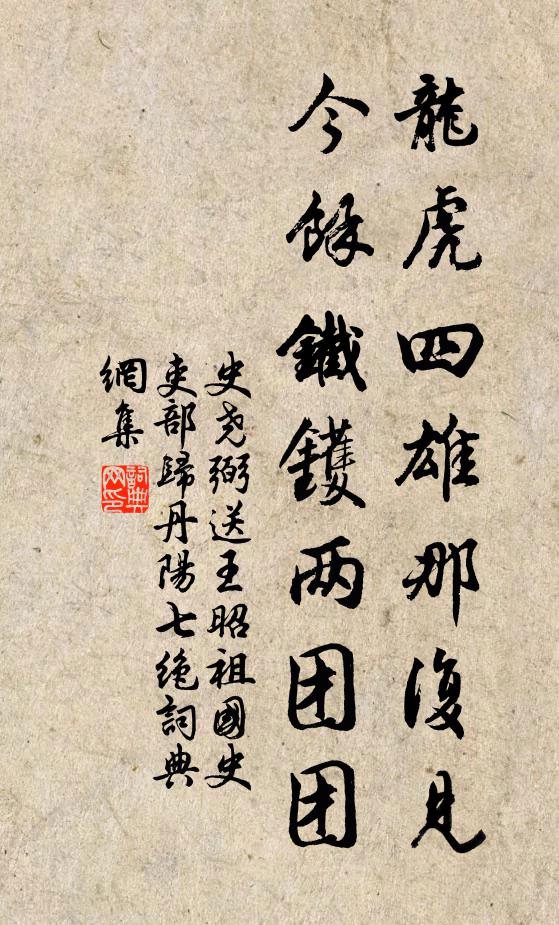 龍虎四雄那復見
今餘鐵鑊兩团团
史尧弼送王昭祖國史
吏部歸丹陽七绝詞典
網集
詞典网印